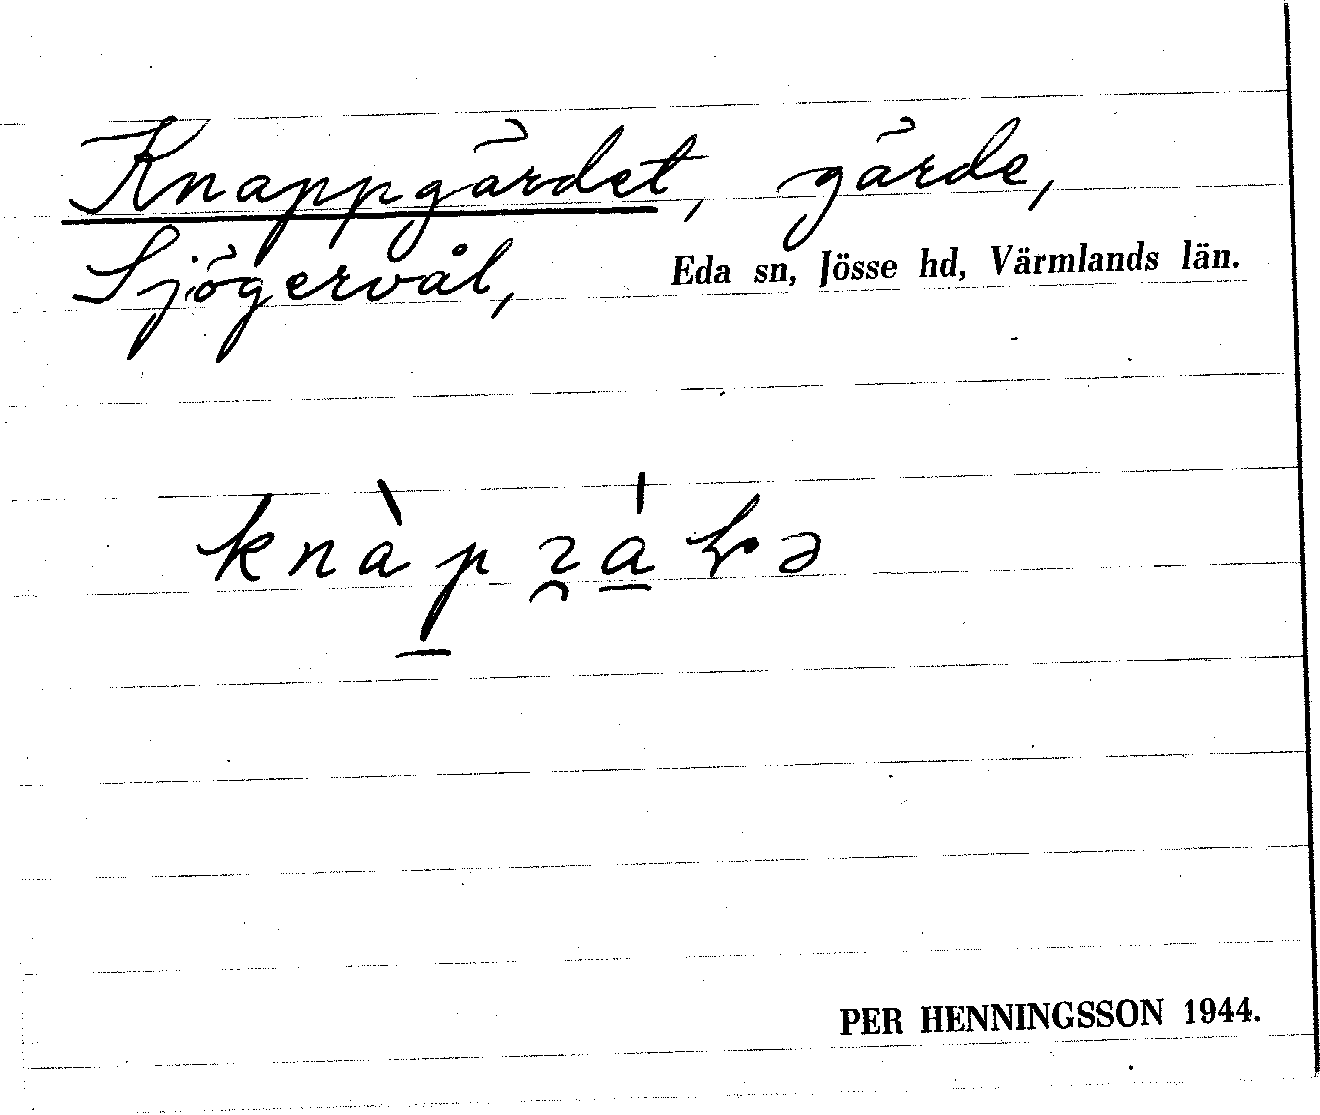 Knappgärdet, gärde,
Sjögervål, Eda sn, Jösse hd, Värmlands län.
PER HENNINGSSON 1944.